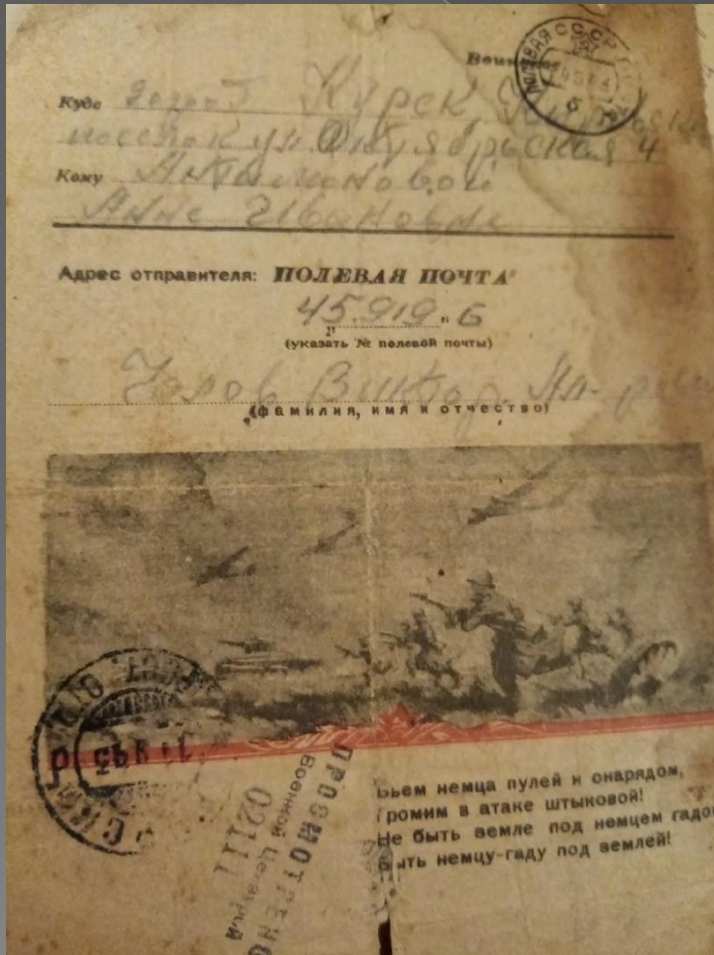 Куда город Курск
поселок ул. Октябрьская 4
Кому
Анне Ивановне
Адрес отправителя: ПОЛЕВАЯ ПОЧТА
45.919 „ Б
(указать № полевой почты)
Виктор
(фамилия, имя и отчество)
ПРОСМОТРЕНО
Военной Цензурой
02111
Бьем немца пулей и снарядом,
Громим в атаке штыковой!
Не быть земле под немцем гадом
Быть немцу-гаду под землей!